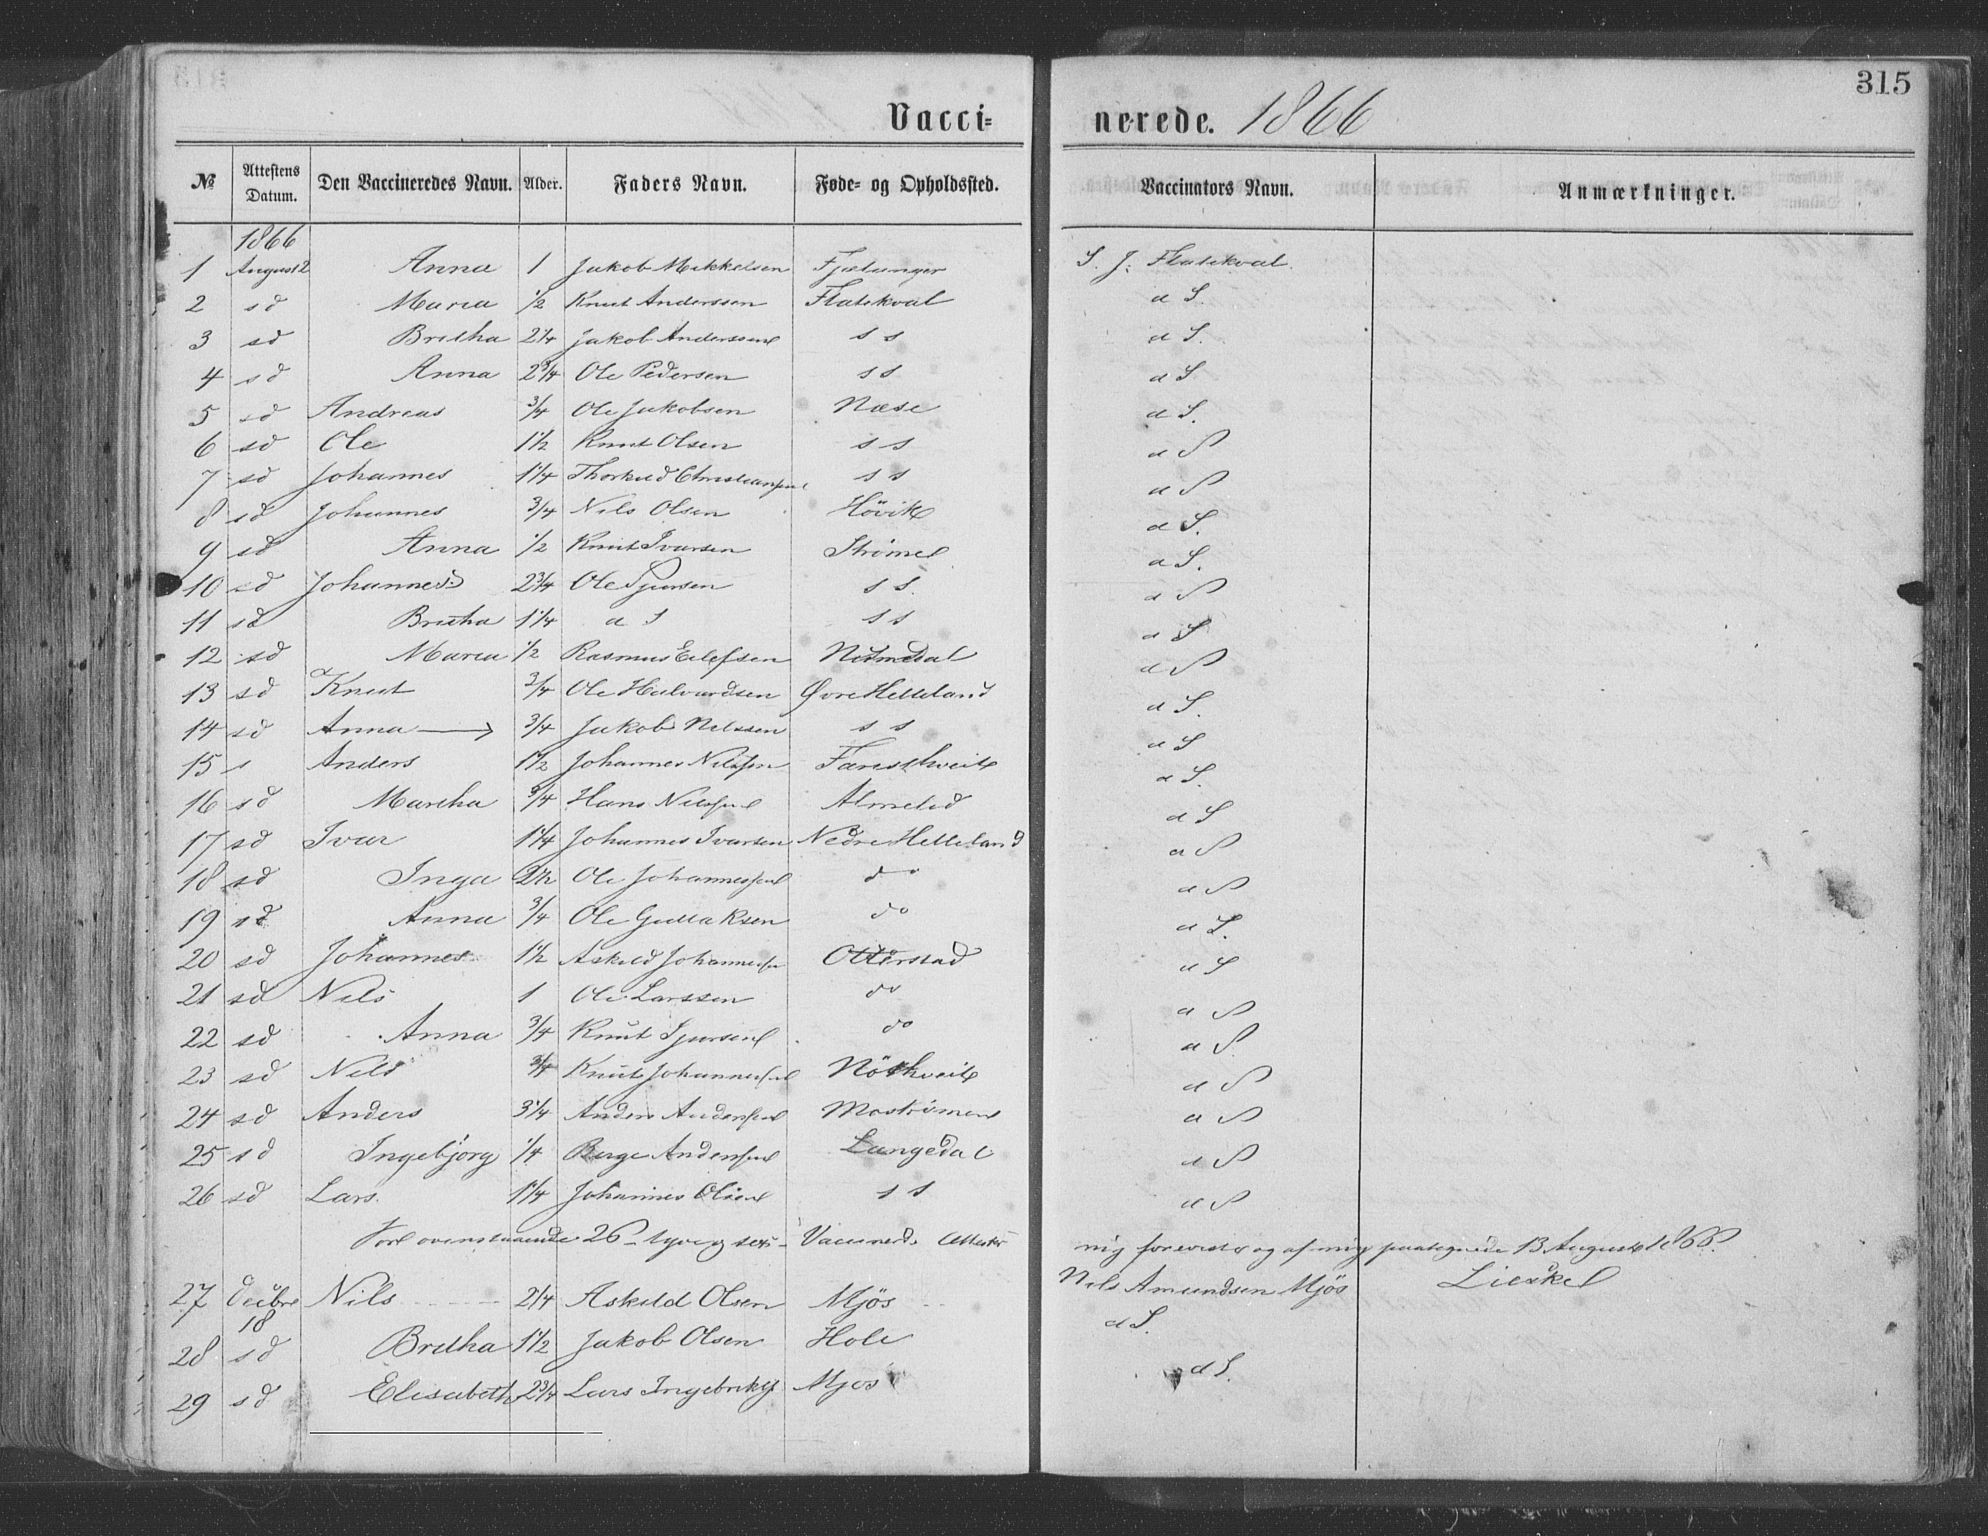 315
Vacci= nerede. 1866
No Attestens Datum. Den Vaccineredes Navn. Alder. Faders Navn. Føde- og Opholdssted. Vaccinators Navn. Anmærkninger.
1866
1 August 2 Anna 1 Jakob Mikkelsen Fjælanger S. J. Flatekval
2 sd Maria 1/2 Knut Anderssen Flatekval d S.
3 sd Bretha 2 1/4 Jakob Anderssen s s d S.
4 sd Anna 2 3/4 Ole Pedersen s s d S
5 sd Andreas 3/4 Ole Jakobsen Næse d S.
6 sd Ole 1 1/2 Knut Olsen s s d S
7 sd Johannes 1 1/4 Thorkild Christiansen s s d S
8 sd Johannes 3/4 Nils Olsen Hövik d S.
9 sd Anna 1/2 Knut Ivarsen Strømel d S.
10 sd Johannes 2 3/4 Ole Sjursen s s. d S
11 sd Bretha 1 1/4 d s s s d S
12 sd Maria 1/2 Rasmus Eilefsen d S
13 sd Knut 3/4 Ole Halvardsen Øvre Helleland d S.
14 sd Anna 3/4 Jakob Nilssen s s d S
15 s Anders 1 1/2 Johannes Nilssen Færesthveit d S.
16 sd Martha 3/4 Hans Nilssen Almelid d S
17 sd Ivar 1 1/4 Johannes Ivarsen Nedre Helleland d S
18 sd Inga 2 1/2 Ole Johannessen do d S
19 sd Anna 3/4 Ole Gullaksen do d S.
20 sd Johannes 1 1/2 Askild Johannessen Otterstad d S
21 sd Nils 1 Ole Larssen do d S
22 sd Anna 3/4 Knut Sjursen do d S
23 sd Nils 3/4 Knut Johannessen Nöthveit d S
24 sd Anders 3 1/4 Anders Anderssen Mostrømen d S
25 sd Ingebjörg 1/4 Børge Anderssen Langedal d S
26 sd Lars 1 1/4 Johannes Olsen s s d S
For ovenstaaende 26 - tyve og sex - Vaccinerede Attester mig foreviste og af mig paategnede 13 August 1866.
27 Decbr 18 Nils 2 1/4 Askild Olsen Mjös Nils Amundsen Mjös
28 sd Bretha 1 1/2 Jakob Olsen Hole d S.
29 sd Elisabeth 2 3/4 Lars Ingebrikts Mjøs d S.